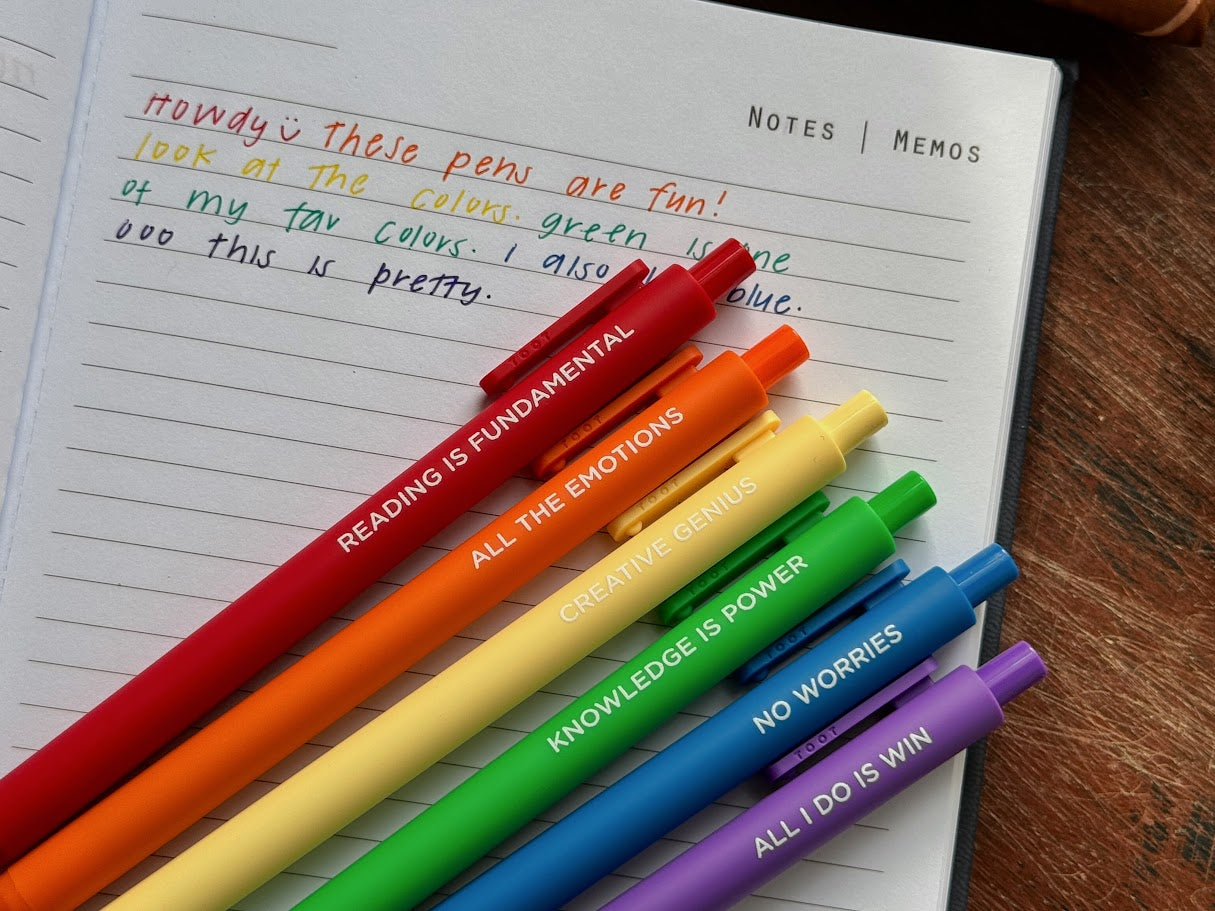 NOTES | MEMOS
Howdy These pens are fun!
look at the colors. green is
of my fav colors. i also blue.
ooo this is pretty.
TOOT
READING IS FUNDAMENTAL
TOOT
ALL THE EMOTIONS
TOOT
CREATIVE GENIUS
TOOT
KNOWLEDGE IS POWER
TOOT
NO WORRIES
TOOT
ALL I DO IS WIN